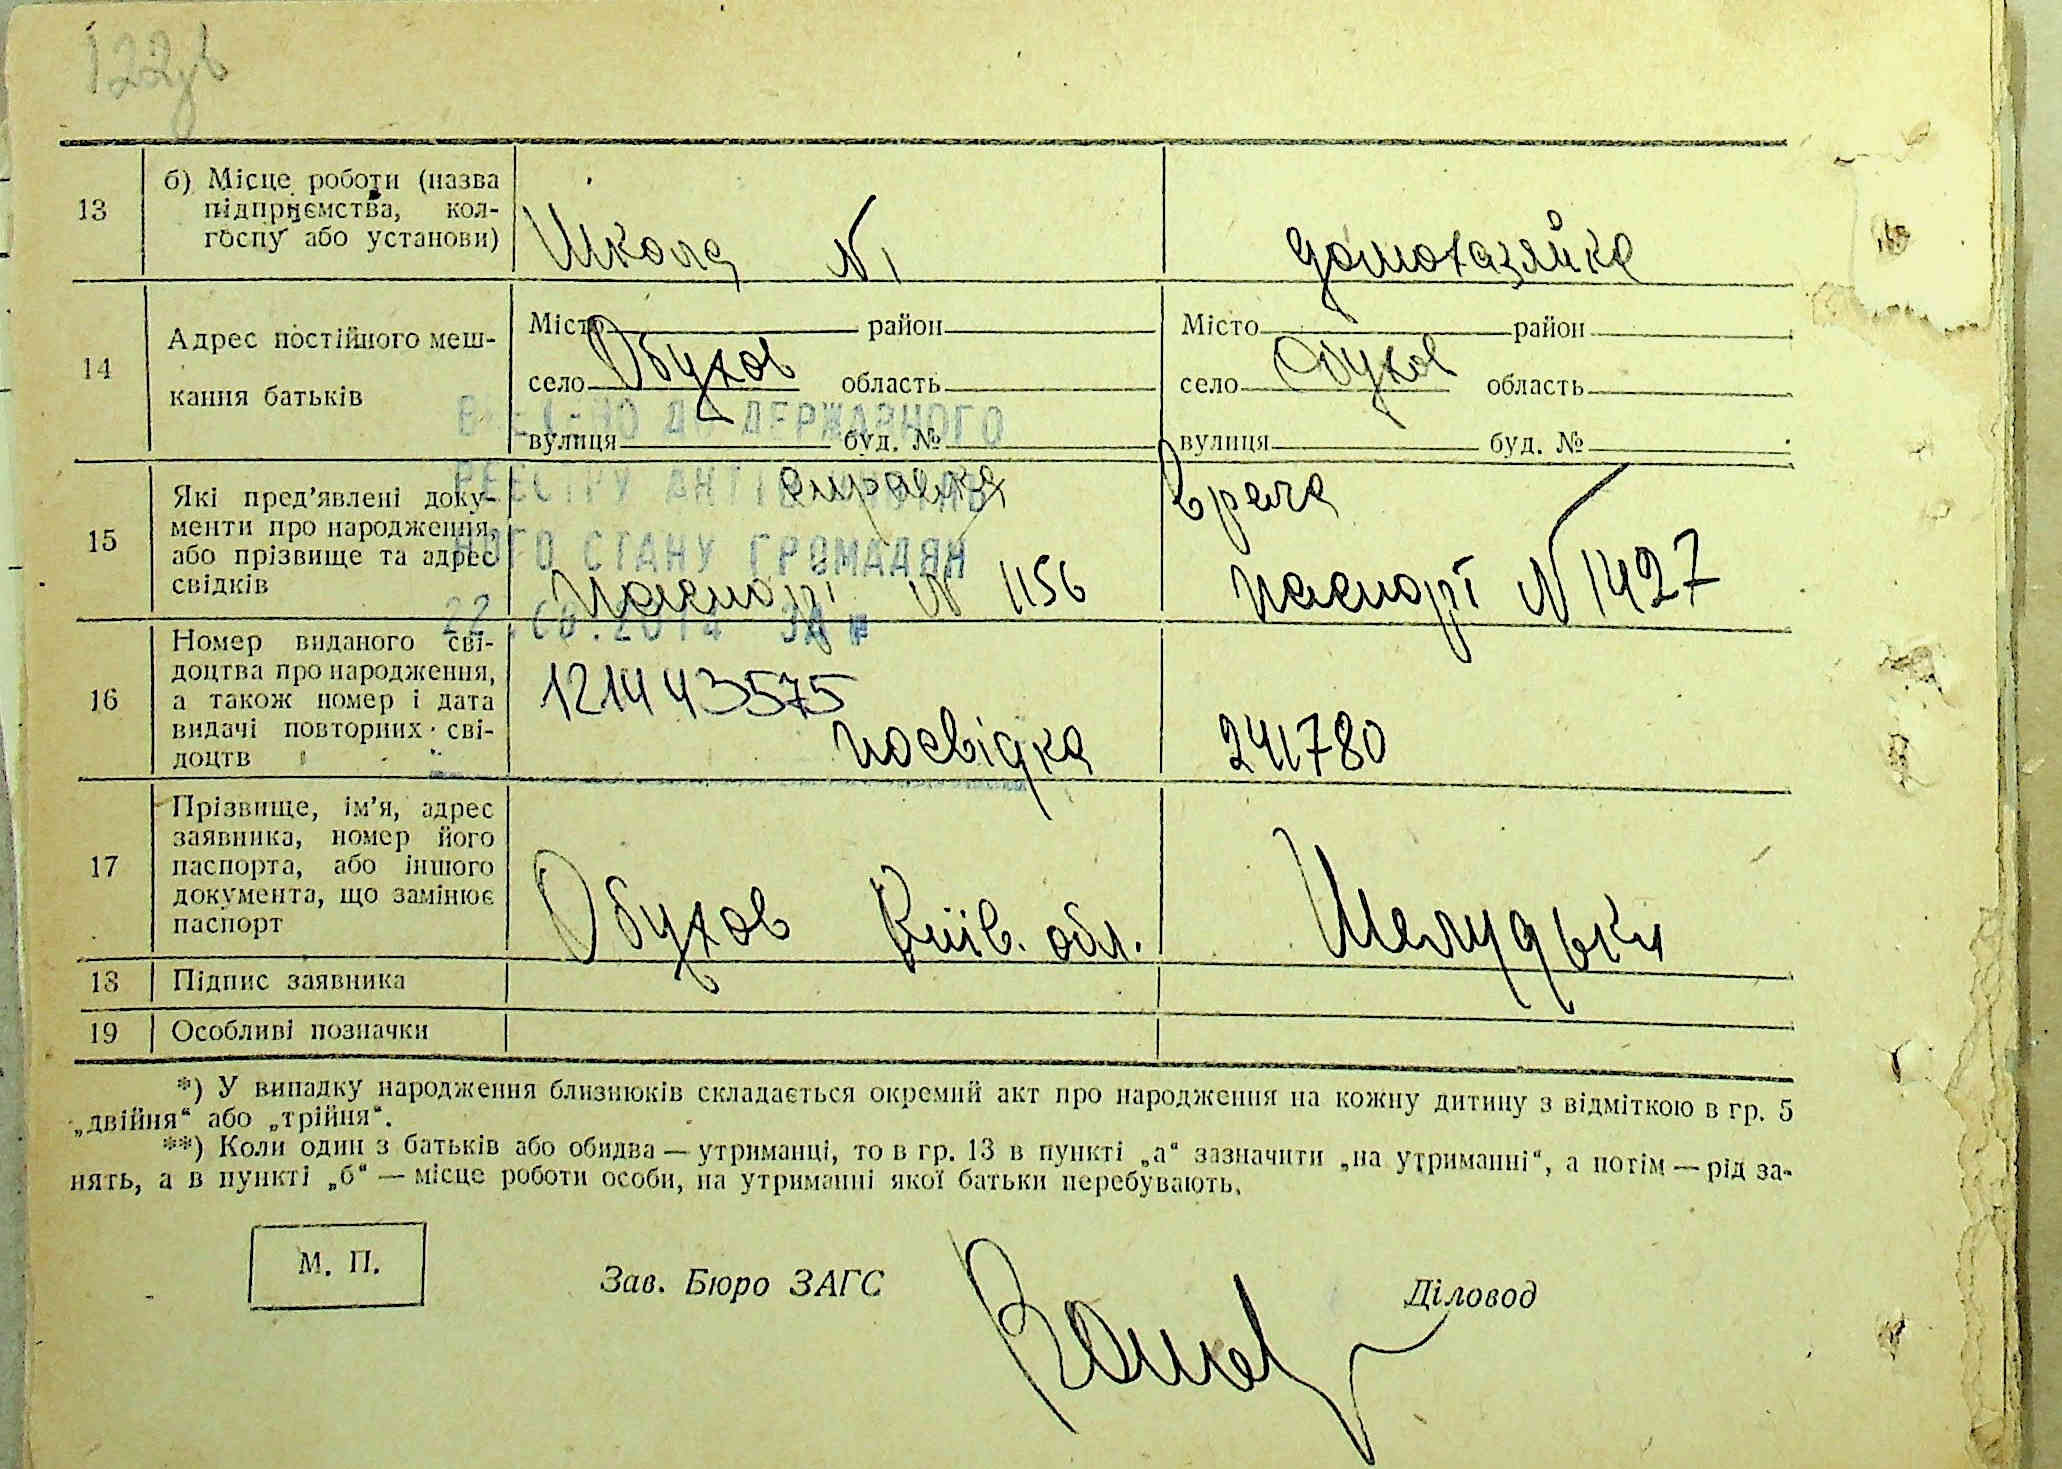 122зв
13
б) Місце роботи (назва
підприємства, кол-
госпу або установи)
Школа №1
домохазяйка
14
Адрес постійного меш-
кання батьків
Місто район
село Обухов область
вулиця буд. №
Місто район
село Обухов область
вулиця буд. №
15
Які пред'явлені доку-
менти про народження,
або прізвище та адрес
свідків
справка врача
паспорт № 1156
паспорт № 1427
ДО ДЕРЖАВНОГО
РЕЄСТРУ АКТІВ
НОГО СТАНУ ГРОМАДЯН
ЗА №
16
Номер виданого сві-
доцтва про народження,
а також номер і дата
видачі повторних сві-
доцтв
1214443575
посвідка 241780
17
Прізвище, ім'я, адрес
заявника, номер його
паспорта, або іншого
документа, що замінює
паспорт
Обухов Київ. обл.
18
Підпис заявника
19
Особливі позначки
*) У випадку народження близнюків складається окремий акт про народження на кожну дитину з відміткою в гр. 5
„двійня“ або „трійня“.
**) Коли один з батьків або обидва — утриманці, то в гр. 13 в пункті „а“ зазначити „на утриманні“, а потім — рід за-
нять, а в пункті „б“ — місце роботи особи, на утриманні якої батьки перебувають.
М. П.
Зав. Бюро ЗАГС
Діловод